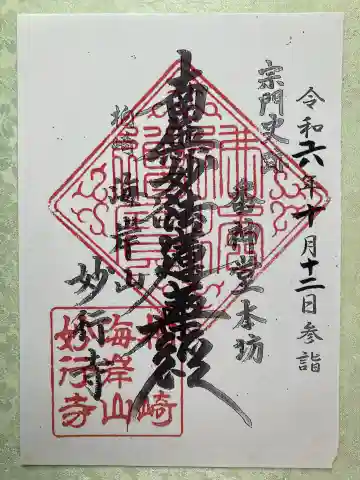 令和六年十月十二日参詣
宗門史跡
番神堂本坊
南無妙法蓮華経
柏崎 海岸山
妙行寺
崎
海岸山
妙行寺